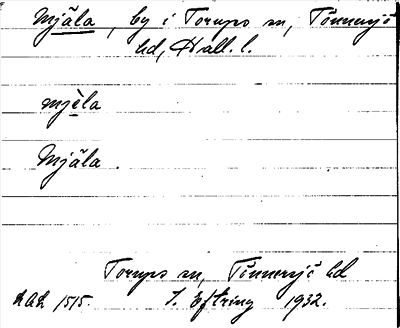 Mjäla, by i Torups sn, Tönnersjö
hd, Hall. l.
mjèla
Mjäla.
Torups sn, Tönnersjö hd
LAL 1515. I. Eftring 1932.